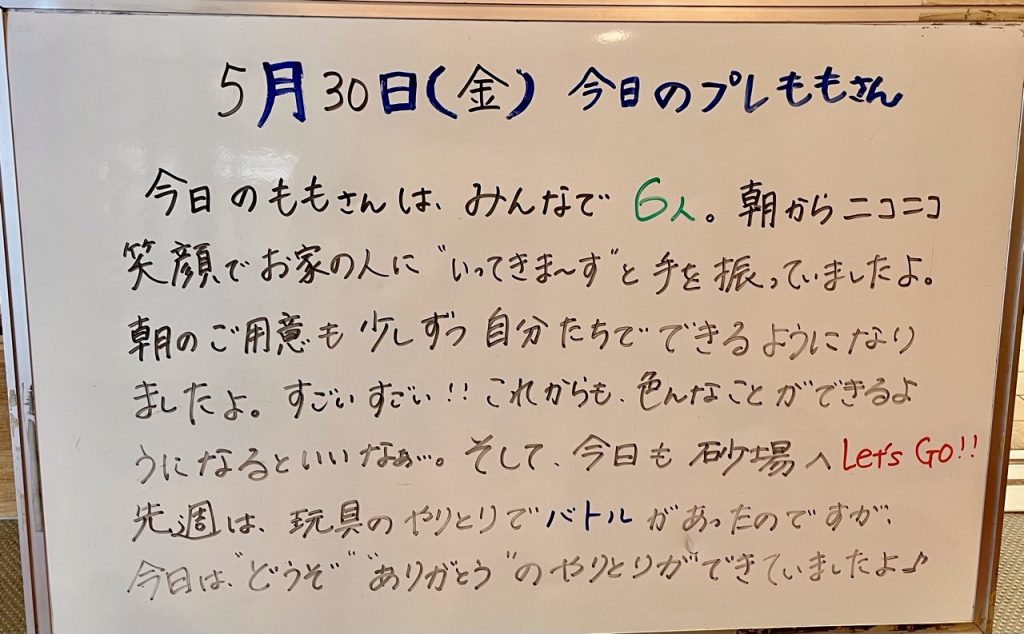 5月30日(金) 今日のプレももさん
今日のももさんは、みんなで 6人。朝からニコニコ
笑顔でお家の人に"いってきま～す"と手を振っていましたよ。
朝のご用意も少しずつ自分たちでできるようになり
ましたよ。すごいすごい!! これからも、色んなことができるよ
うになるといいなぁ…。そして、今日も砂場へ Let's Go!!
先週は、玩具のやりとりでバトルがあったのですが、
今日は、"どうぞ" "ありがとう"のやりとりができていましたよ♪